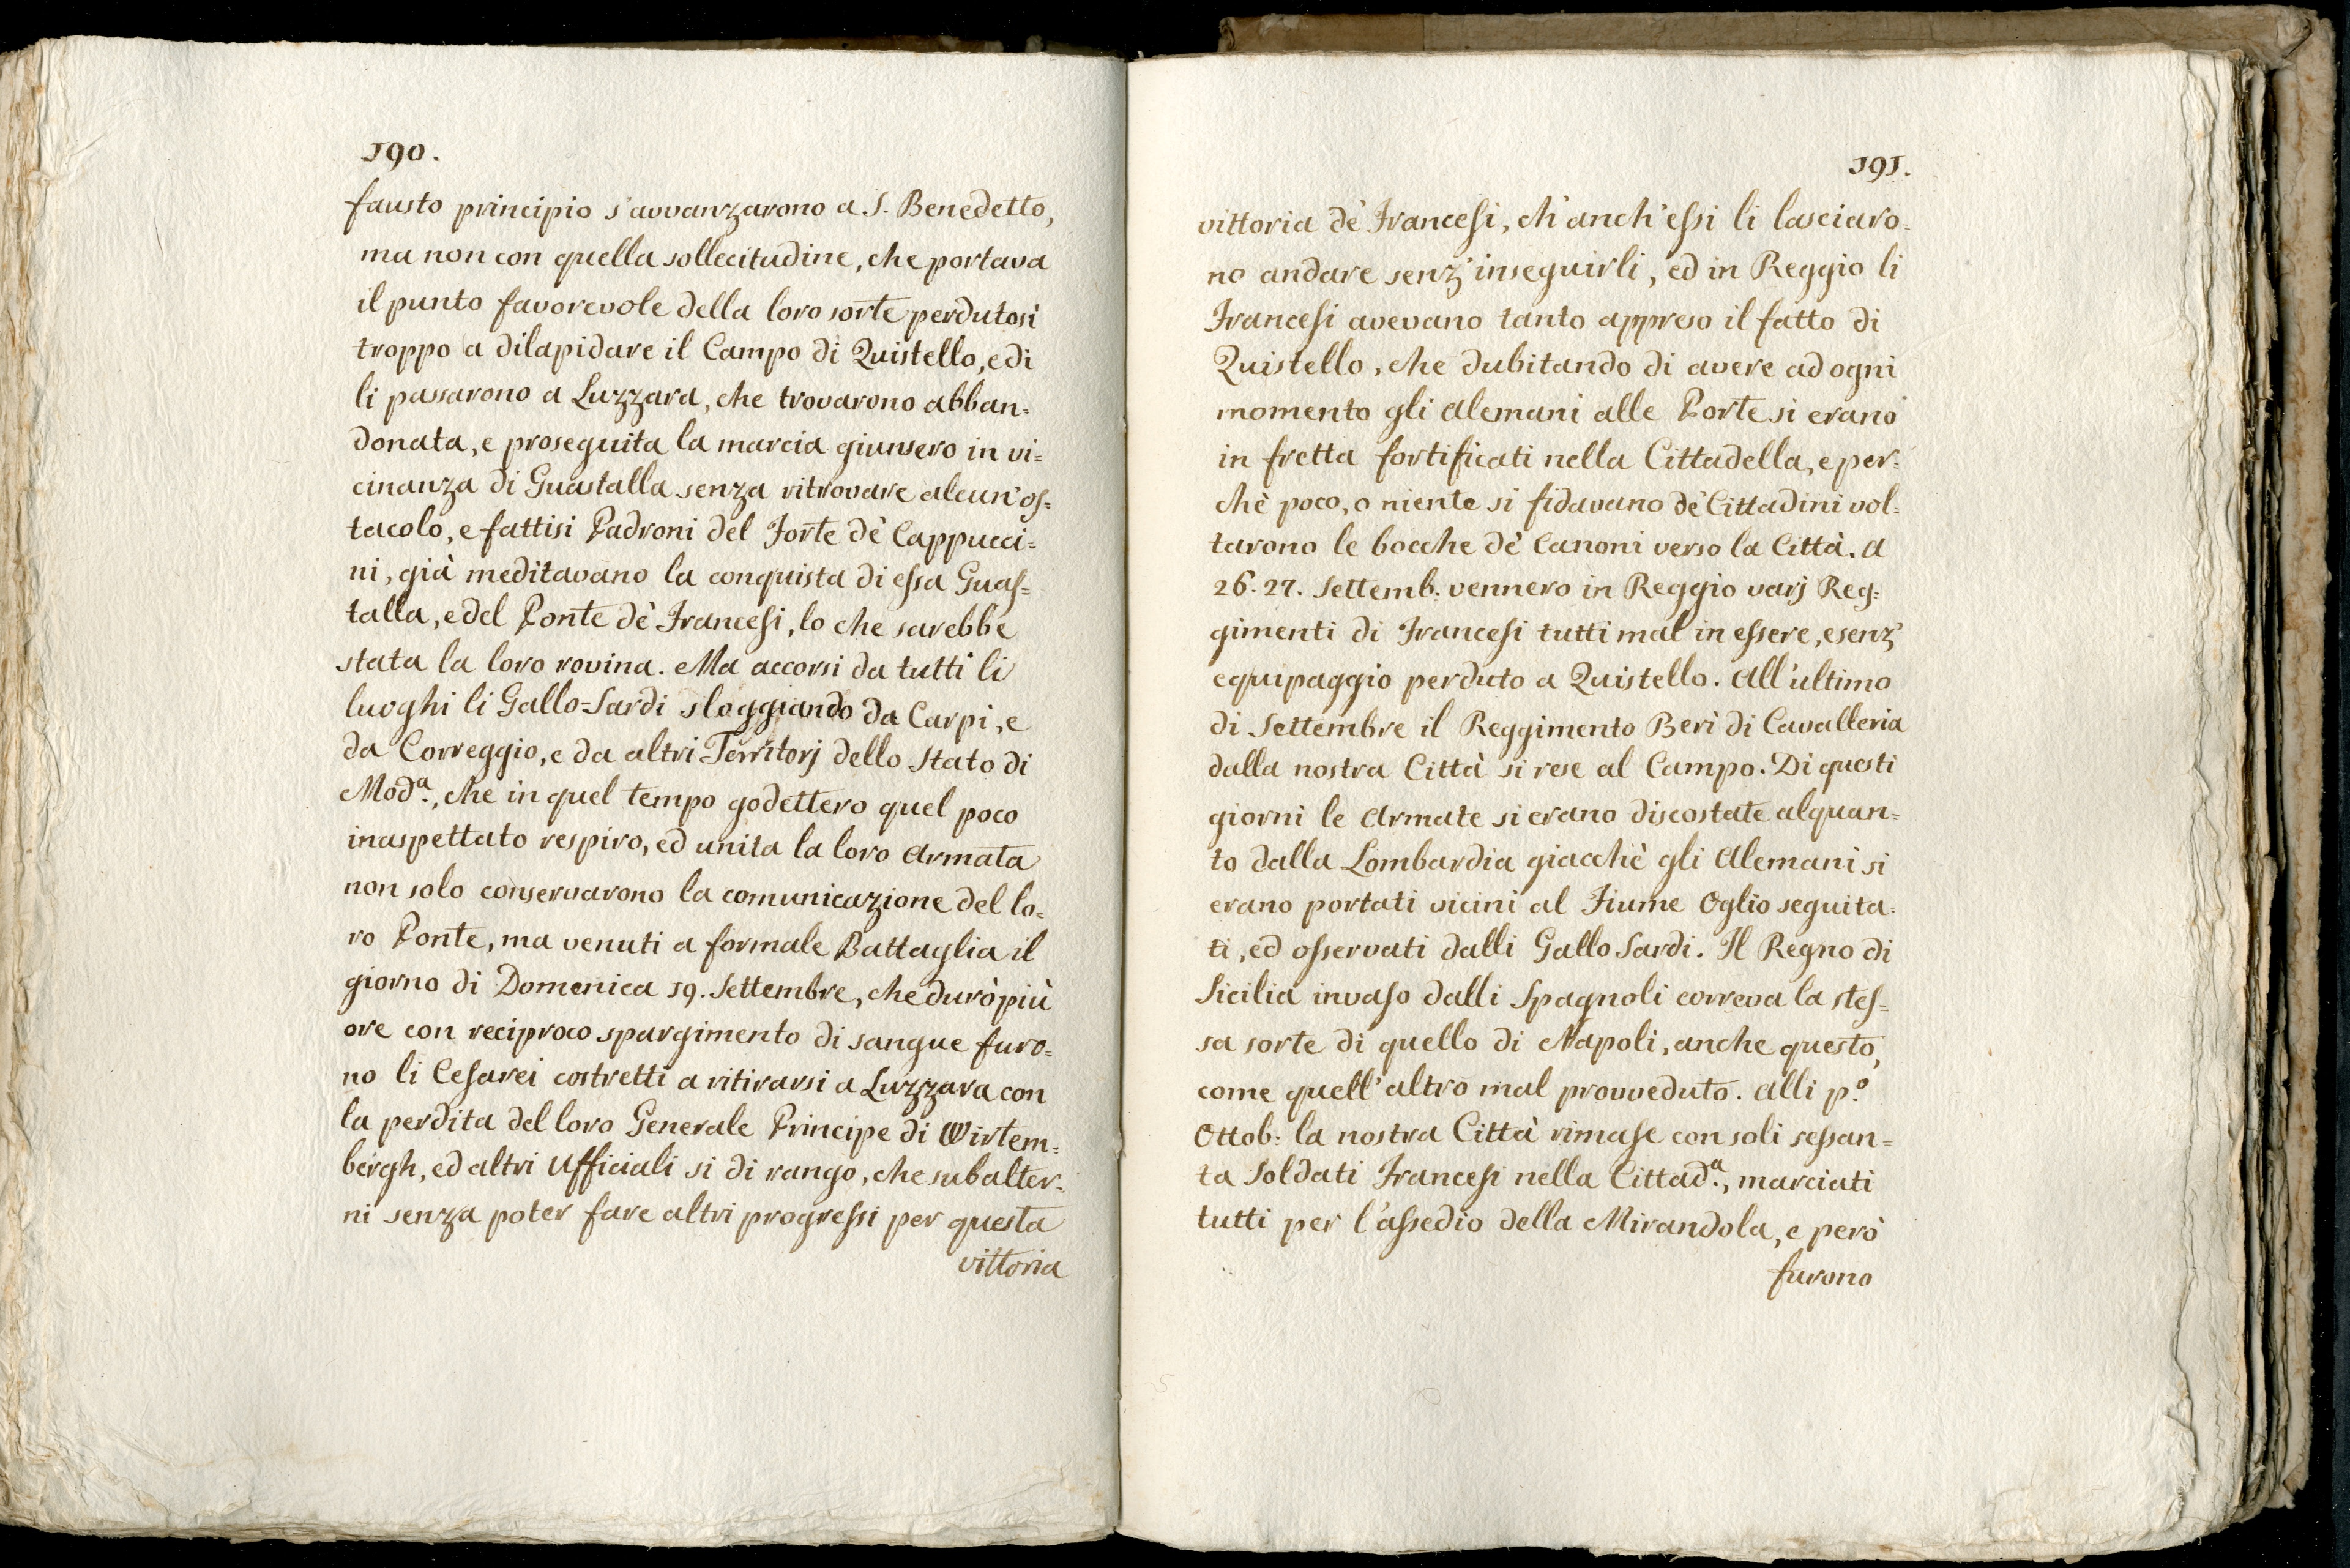 190.
fausto principio s'avvanzarono a S. Benedetto,
ma non con quella sollecitudine, che portava
il punto favorevole della loro sorte perdutosi
troppo a dilapidare il Campo di Quistello, e di
li passarono a Luzzara, che trovarono abban=
donata, e proseguita la marcia giunsero in vi=
cinanza di Guastalla senza ritrovare alcun' os=
tacolo, e fattisi Padroni del Forte de' Cappucci=
ni, già meditavano la conquista di essa Guas=
talla, e del Ponte de' Francesi, lo che sarebbe
stata la loro rovina. Ma accorsi da tutti li
luoghi li Gallo=Sardi sloggiando da Carpi, e
da Correggio, e da altri Territorj dello Stato di
Mod.ª, che in quel tempo godettero quel poco
inaspettato respiro, ed unita la loro Armata
non solo conservarono la comunicazione del lo=
ro Ponte, ma venuti a formale Battaglia il
giorno di Domenica 19. Settembre, che durò più
ore con reciproco spargimento di sangue furo=
no li Cesarei costretti a ritirarsi a Luzzara con
la perdita del loro Generale Principe di Wirtem=
bergh, ed altri Ufficiali si di rango, che subalter=
ni senza poter fare altri progressi per questa
vittoria
191.
vittoria de' Francesi, ch'anch'essi li lasciaro=
no andare senz'inseguirli, ed in Reggio li
Francesi avevano tanto appreso il fatto di
Quistello, che dubitando di avere ad ogni
momento gli Alemani alle Porte si erano
in fretta fortificati nella Cittadella, e per=
chè poco, o niente si fidavano de' Cittadini vol=
tarono le bocche de' Canoni verso la Città. A
26. 27. Settemb: vennero in Reggio varj Reg=
gimenti di Francesi tutti mal in essere, e senz'
equipaggio perduto a Quistello. All'ultimo
di Settembre il Reggimento Berì di Cavalleria
dalla nostra Città si rese al Campo. Di questi
giorni le Armate si erano discostate alquan=
to dalla Lombardia giacchè gli Alemani si
erano portati vicini al Fiume Oglio seguita=
ti, ed osservati dalli Gallo Sardi. Il Regno di
Sicilia invaso dalli Spagnoli correva la stes=
sa sorte di quello di Napoli, anche questo,
come quell'altro mal provveduto. Alli p.º
Ottob: la nostra Città rimase con soli sessan=
ta Soldati Francesi nella Cittad.ª, marciati
tutti per l'assedio della Mirandola, e però
furono